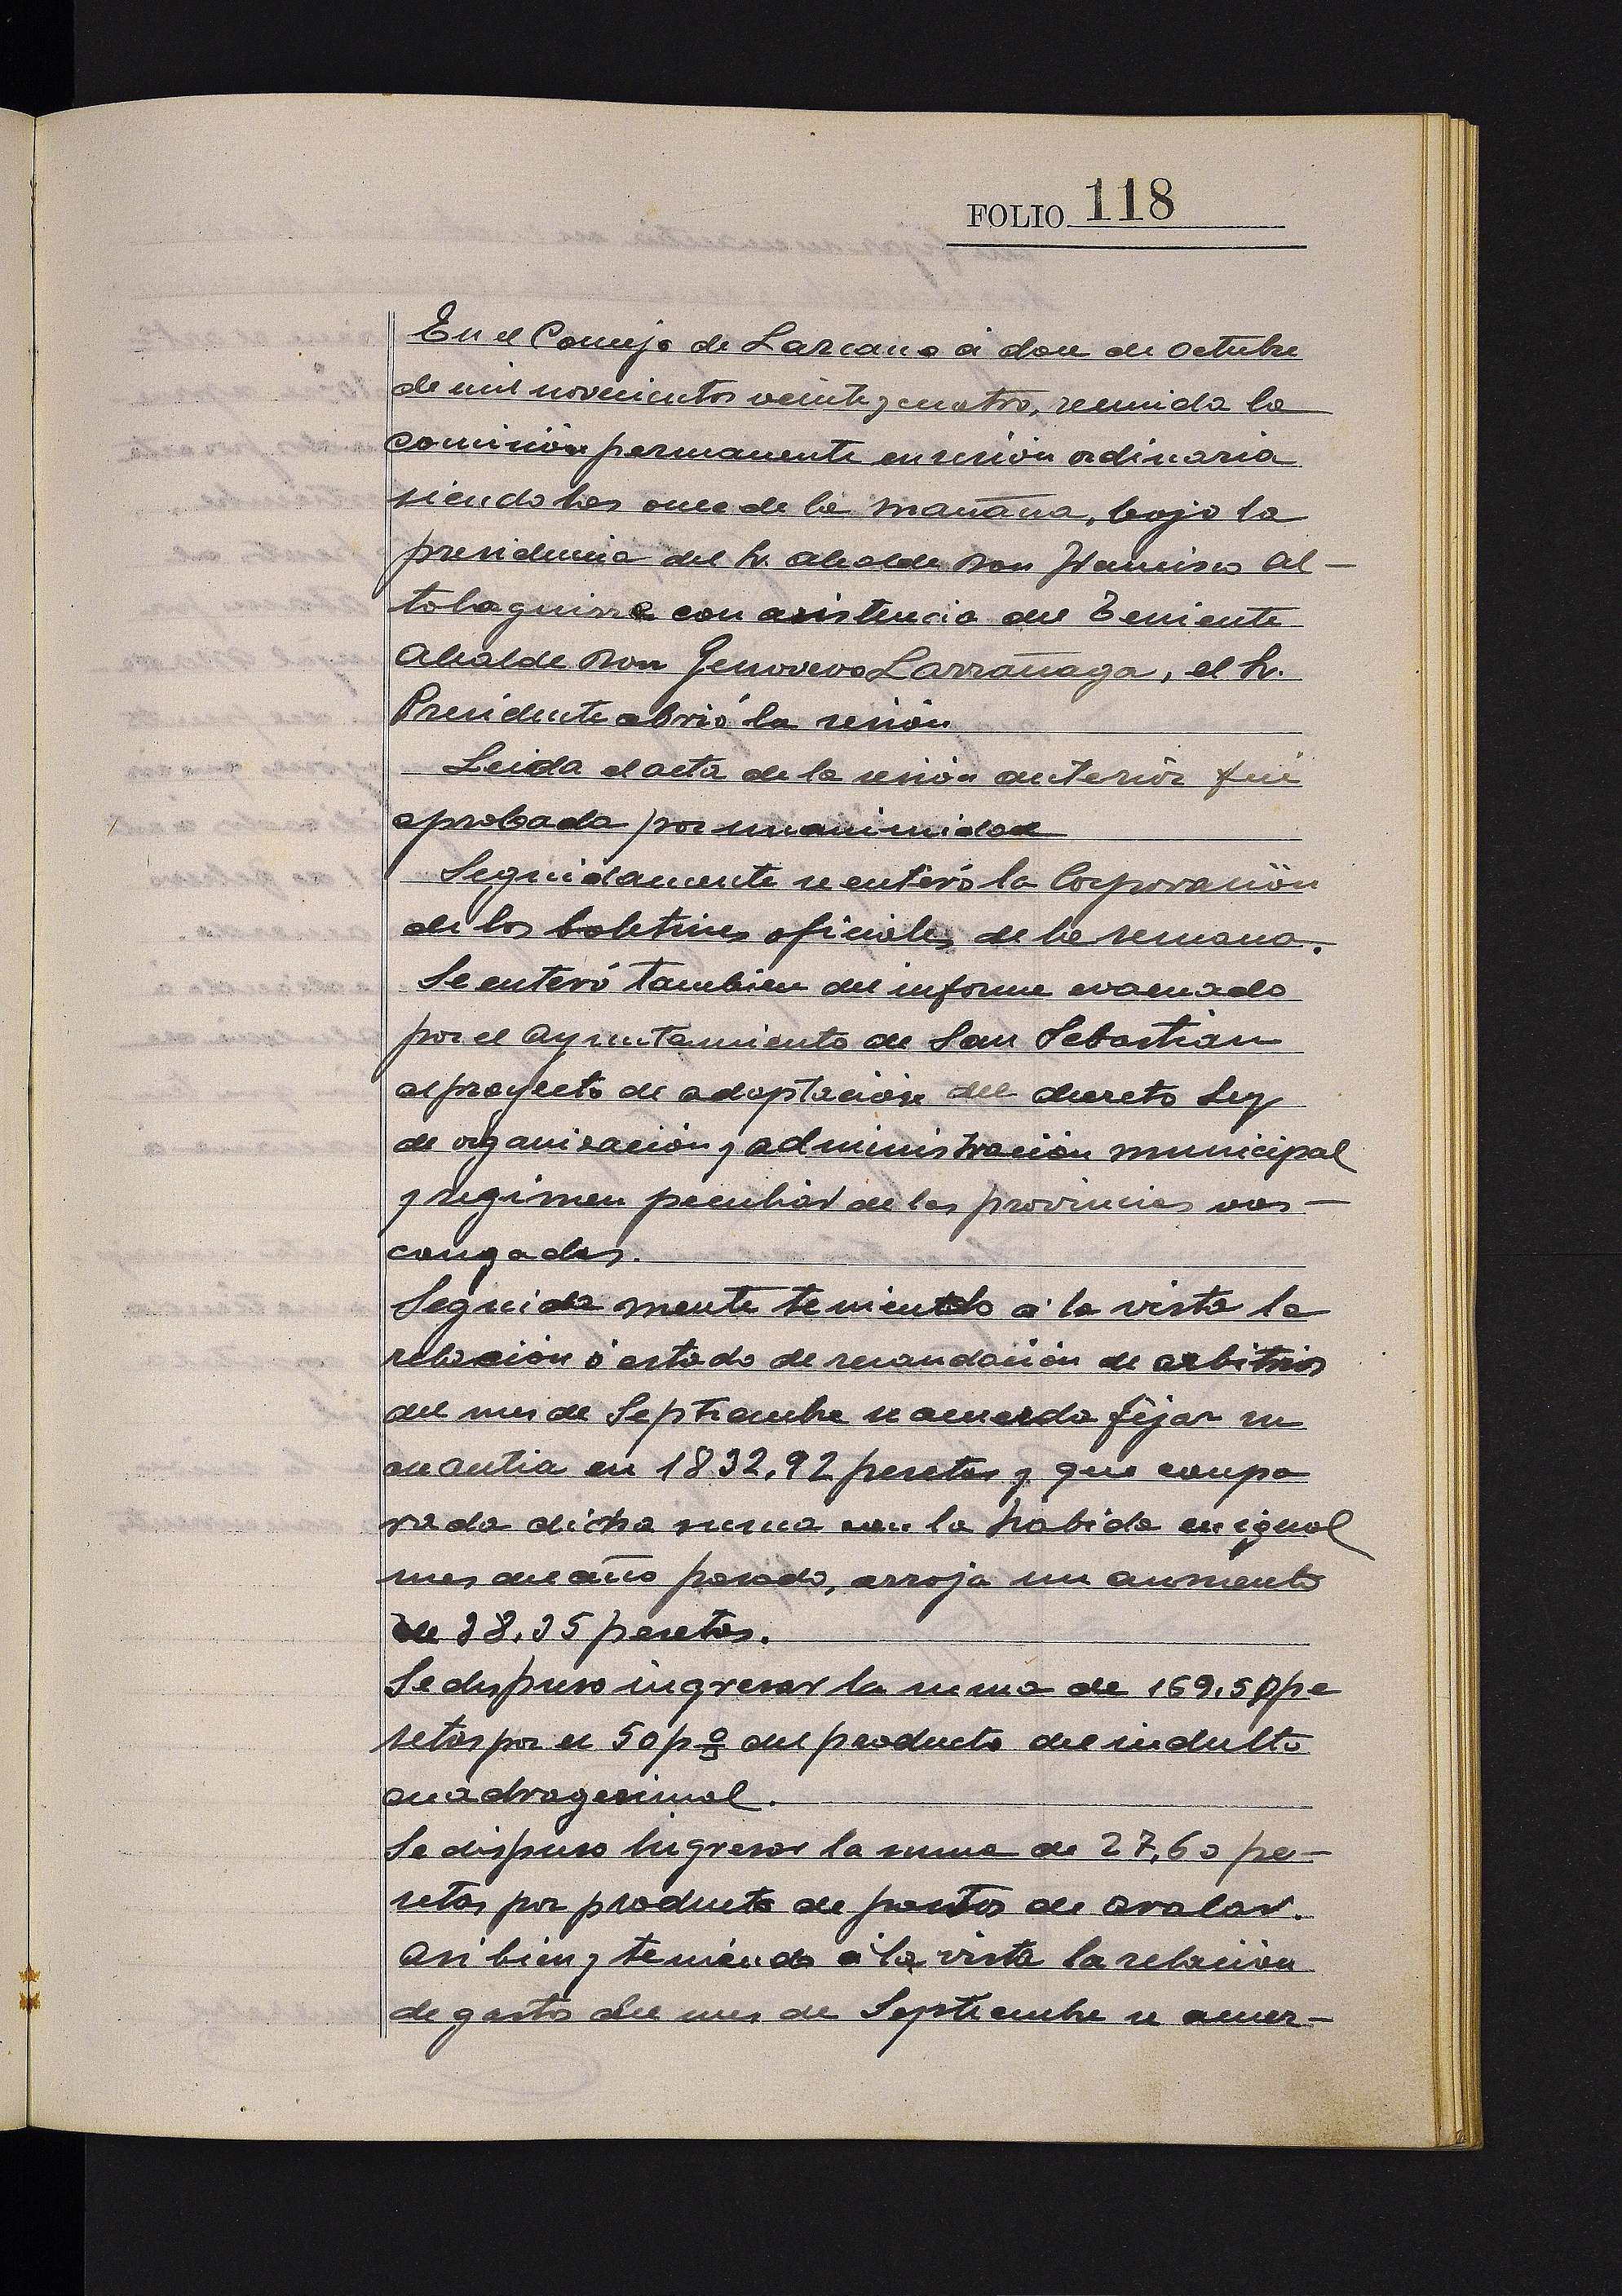 FOLIO 118
En el Concejo de Lazcano á doce de Octubre
de mil novecientos veinte y cuatro, reunida la
Comisión permanente en sesión ordinaria
siendo las once de la mañana, bajo la
presidencia del Sr. Alcalde Don Francisco Al-
tolaguirre con asistencia del Teniente
Alcalde Don Genoveva Larrañaga, el Sr.
Presidente abrió la sesión
Leida el acta de la sesión anterior fué
aprobada por unanimidad
Seguidamente se enteró la Corporación
de los boletines oficiales de la semana.
Se enteró tambien del informe evacuado
por el Ayuntamiento de San Sebastián
al proyecto de adaptación del decreto ley
de organización y administración municipal
y regimen peculiar de las provincias vas-
congadas.
Seguidamente teniendo á la vista la
relación ó estado de recaudación de arbitrios
del mes de Septiembre se acuerda fijar su
cuantia en 1832,92 pesetas y que compa
rada dicha suma con la habida en igual
mes del año pasado, arroja un aumento
de 38,35 pesetas.
Se dispuso ingresar la suma de 169,50 pe
setas por el 50 p% del producto del indulto
cuadragesimal.
Se dispuso ingresar la suma de 27,60 pe-
setas por producto de pastos de Aralar.
Asi bien y teniendo á la vista la relación
de gastos del mes de Septiembre se acuer-